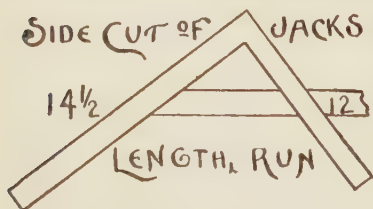 SIDE CUT OF JACKS
14½ 12
LENGTH, RUN